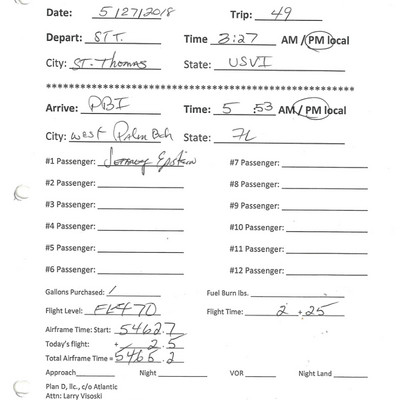 Date: 5/27/2018 Trip: 49
Depart: STT. Time 3:27 AM / PM local
City: ST. Thomas State: USVI
************************************************************
Arrive: PBI Time: 5 :53 AM / PM local
City: West Palm Bch State: FL
#1 Passenger: Jeffrey Epstein #7 Passenger:
#2 Passenger: #8 Passenger:
#3 Passenger: #9 Passenger:
#4 Passenger: #10 Passenger:
#5 Passenger: #11 Passenger:
#6 Passenger: #12 Passenger:
Gallons Purchased: / Fuel Burn lbs.
Flight Level: FL470 Flight Time: 2 + 25
Airframe Time: Start: 5462.7
Today's flight: + 2.5
Total Airframe Time = 5465.2
Approach Night VOR Night Land
Plan D, llc., c/o Atlantic
Attn: Larry Visoski